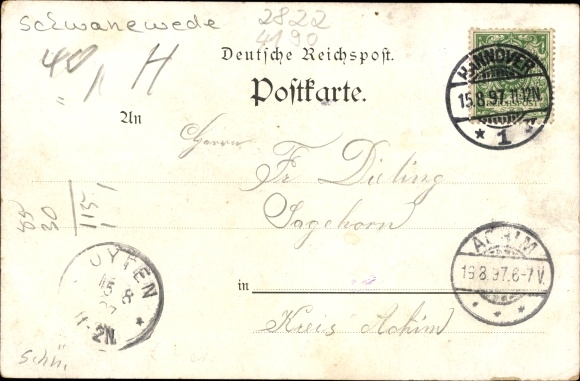 Schwanewede
2822
4190
40, H
Deutsche Reichspost.
Postkarte.
HANNOVER
15.8.97. 11-12N.
* 1
An
Herrn
Fr Dieling
Sagehorn
in
Kreis Achim
1151
30
OYTEN
15 8
97
2N.
*
ACHIM
16.8.97.6-7V.
* * *
Schü.